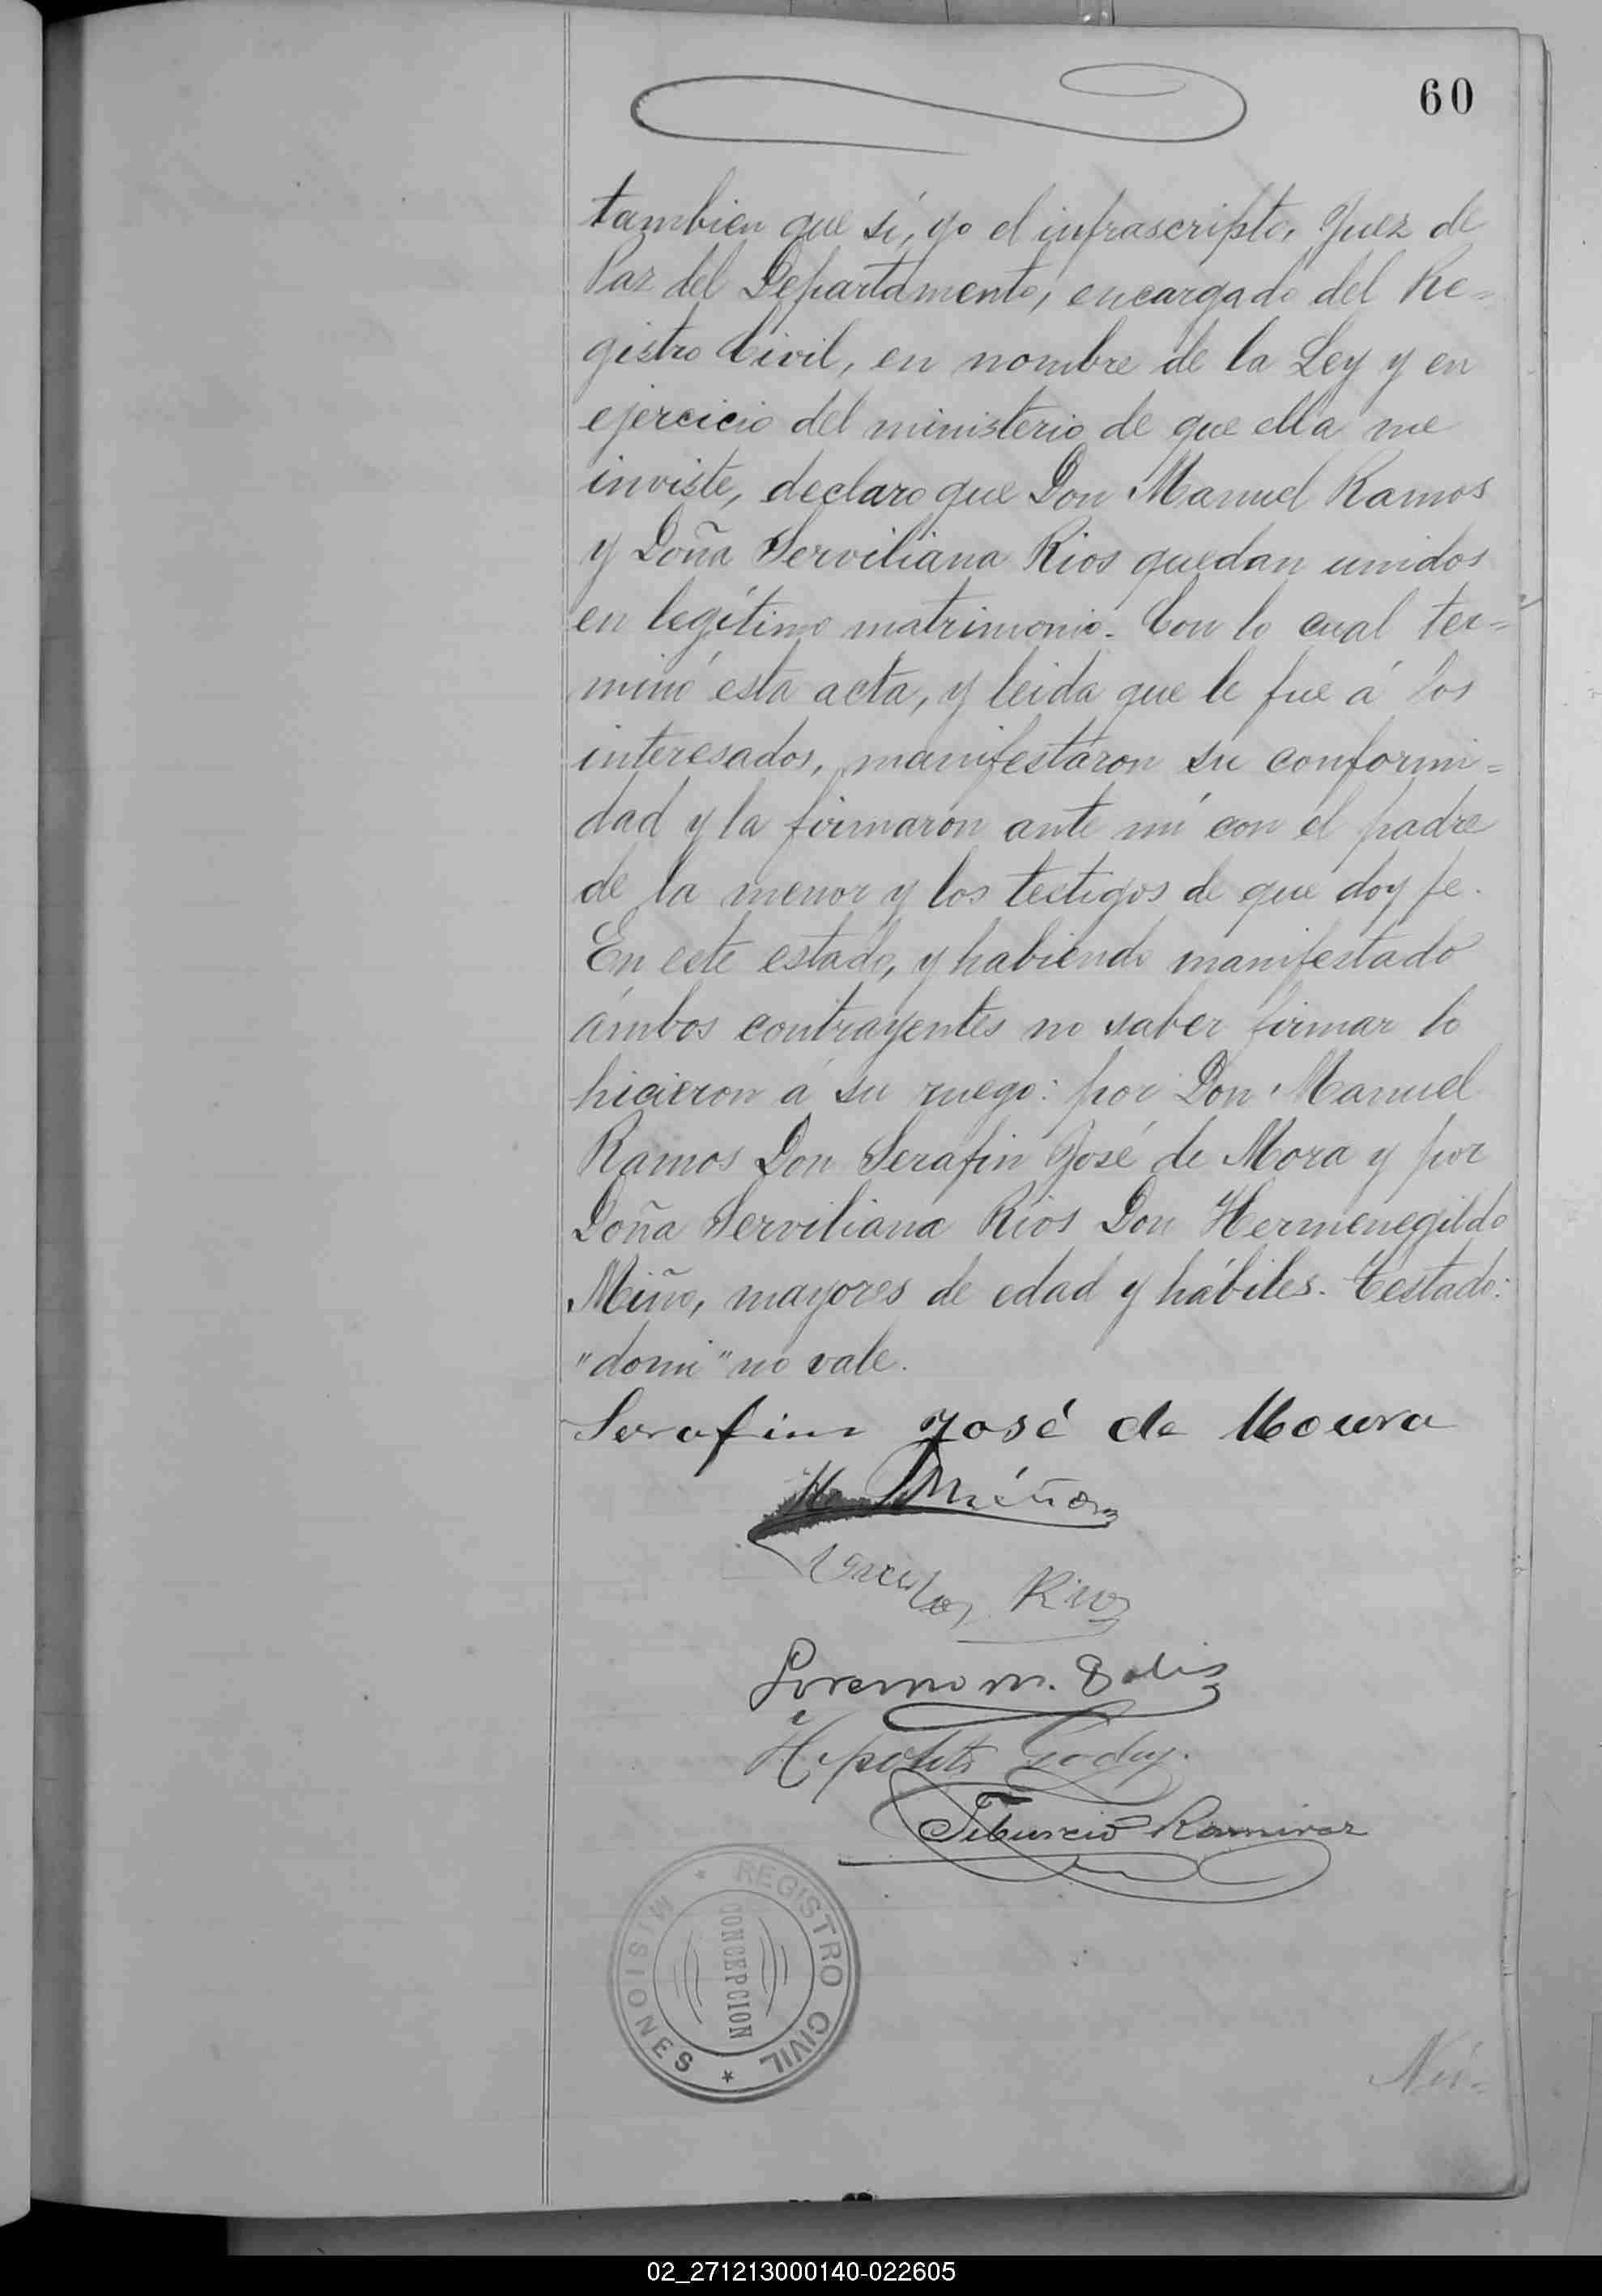 60
tambien que sí, yo el infrascripto, Juez de
Paz del Departamento, encargado del Re=
gistro Civil, en nombre de la Ley y en
ejercicio del ministerio de que ella me
inviste, declaro que Don Manuel Ramos
y Doña Serviliana Rios quedan unidos
en legítimo matrimonio. Con lo cual ter=
minó esta acta, y leida que le fue á los
interesados, manifestáron su conformi=
dad y la firmaron ante mí con el padre
de la menor y los testigos de que doy fe.
En este estado, y habiendo manifestado
ámbos contrayentes no saber firmar lo
hicieron á su ruego: por Don Manuel
Ramos Don Serafin José de Mora y por
Doña Serviliana Rios Don Hermenegildo
Miño, mayores de edad y hábiles. Testado:
"domi" no vale.
Serafim José de Moura
H Miño
Rios
M. Solis
Hipolito Godoy.
Tiburcio Ramirez
REGISTRO CIVIL * MISIONES *
CONCEPCION
02_271213000140-022605